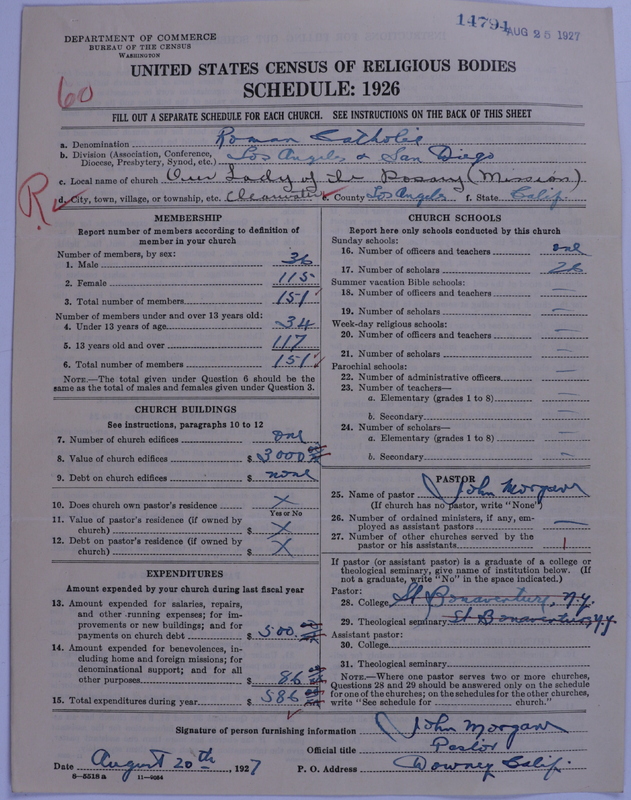 14794 AUG 25 1927
DEPARTMENT OF COMMERCE
BUREAU OF THE CENSUS
WASHINGTON
UNITED STATES CENSUS OF RELIGIOUS BODIES
SCHEDULE: 1926
60
FILL OUT A SEPARATE SCHEDULE FOR EACH CHURCH. SEE INSTRUCTIONS ON THE BACK OF THIS SHEET
a. Denomination Roman Catholic
b. Division (Association, Conference, Diocese, Presbytery, Synod, etc.) Los Angeles & San Diego
c. Local name of church Our Lady of the Rosary (Mission)
R
d. City, town, village, or township, etc. Clearwater e. County Los Angeles f. State Calif.
MEMBERSHIP
Report number of members according to definition of
member in your church
Number of members, by sex:
1. Male 36
2. Female 115
3. Total number of members 151
Number of members under and over 13 years old:
4. Under 13 years of age 34
5. 13 years old and over 117
6. Total number of members 151
NOTE.—The total given under Question 6 should be the
same as the total of males and females given under Question 3.
CHURCH BUILDINGS
See instructions, paragraphs 10 to 12
7. Number of church edifices one
8. Value of church edifices $ 3000 00
9. Debt on church edifices $ none
10. Does church own pastor's residence X
Yes or No
11. Value of pastor's residence (if owned by
church) $ X
12. Debt on pastor's residence (if owned by
church) $ X
EXPENDITURES
Amount expended by your church during last fiscal year
13. Amount expended for salaries, repairs,
and other running expenses; for im-
provements or new buildings; and for
payments on church debt $ 500. 00
14. Amount expended for benevolences, in-
cluding home and foreign missions; for
denominational support; and for all
other purposes $ 86 00
15. Total expenditures during year $ 586 00
CHURCH SCHOOLS
Report here only schools conducted by this church
Sunday schools:
16. Number of officers and teachers one
17. Number of scholars 26
Summer vacation Bible schools:
18. Number of officers and teachers —
19. Number of scholars —
Week-day religious schools:
20. Number of officers and teachers —
21. Number of scholars —
Parochial schools:
22. Number of administrative officers —
23. Number of teachers—
a. Elementary (grades 1 to 8) —
b. Secondary —
24. Number of scholars—
a. Elementary (grades 1 to 8) —
b. Secondary —
PASTOR
25. Name of pastor John Morgan
(If church has no pastor, write "None")
26. Number of ordained ministers, if any, em-
ployed as assistant pastors —
27. Number of other churches served by the
pastor or his assistants 1
If pastor (or assistant pastor) is a graduate of a college or
theological seminary, give name of institution below. (If
not a graduate, write "No" in the space indicated.)
Pastor:
28. College St Bonaventure, N.Y.
29. Theological seminary St Bonaventure, N.Y.
Assistant pastor:
30. College
31. Theological seminary
NOTE.—Where one pastor serves two or more churches,
Questions 28 and 29 should be answered only on the schedule
for one of the churches; on the schedules for the other churches,
write "See schedule for church."
Signature of person furnishing information John Morgan
Official title Pastor
Date August 20th, 1927 P. O. Address Downey Calif.
6-5518a 11-9064